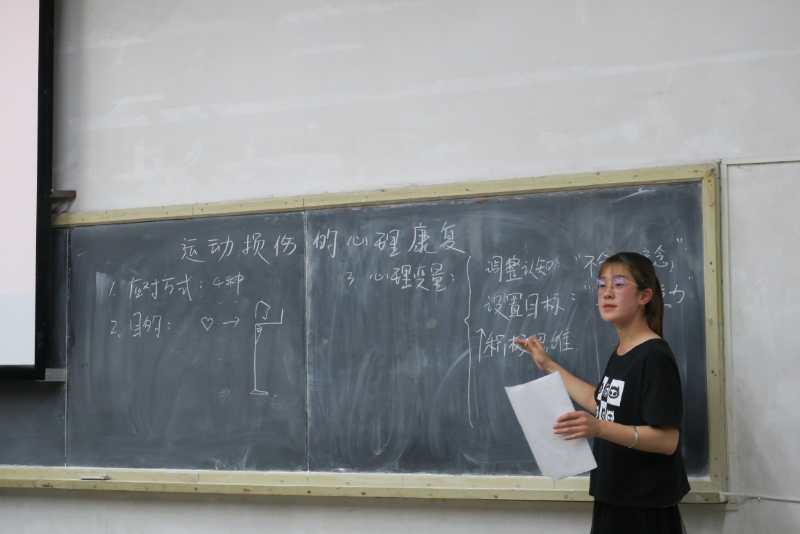 运动损伤的心理康复
1. 应对方式：4种
2. 目的：
3 心理变量：
调整认知 "不合 念"
设置目标：" 力
积极思维